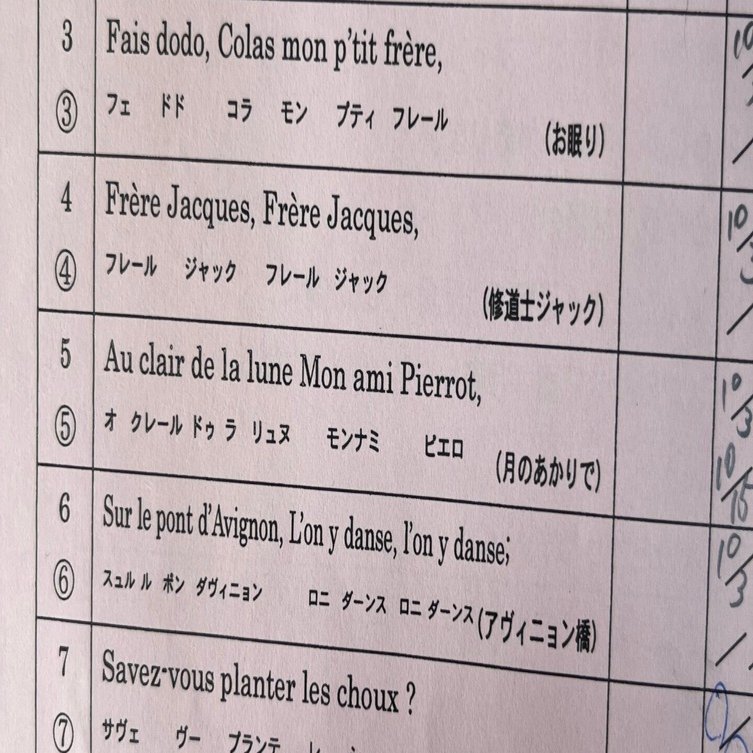 3 Fais dodo, Colas mon p'tit frère, 10/
③ フェ ドド コラ モン プティ フレール (お眠り)
4 Frère Jacques, Frère Jacques, 10/3
④ フレール ジャック フレール ジャック (修道士ジャック)
5 Au clair de la lune Mon ami Pierrot, 10/3
⑤ オ クレール ドゥ ラ リュヌ モンナミ ピエロ (月のあかりで) 10/15
6 Sur le pont d'Avignon, L'on y danse, l'on y danse; 10/3
⑥ スュル ル ポン ダヴィニョン ロニ ダーンス ロニ ダーンス (アヴィニョン橋)
7 Savez-vous planter les choux ?
⑦ サヴェ ヴー プランテ